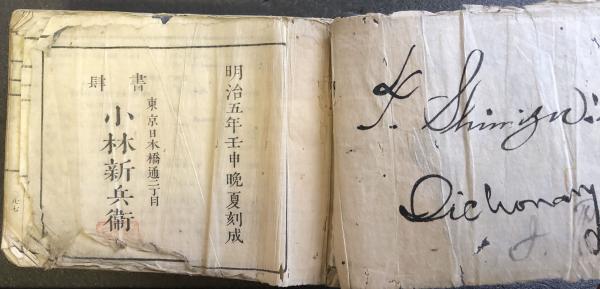 明治五年壬申晩夏刻成
東京日本橋通二丁目
書肆
小林新兵衛
九七
K. Shimizu
Dictionary